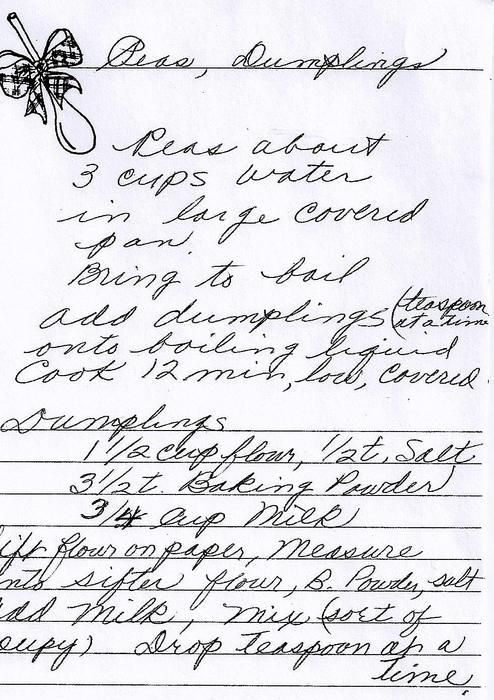 Peas, Dumplings
Peas about
3 cups water
in large covered
pan.
Bring to boil
add dumplings (teaspoon
at a time
onto boiling liquid
Cook 12 min, low, covered.
Dumplings
1 1/2 cup flour, 1/2 t. Salt
3 1/2 t. Baking Powder
3/4 cup Milk
ift flour on paper, Measure
nto sifter flour, B. Powder, salt
dd Milk, mix (sort of
oupy) Drop teaspoon at a
time.